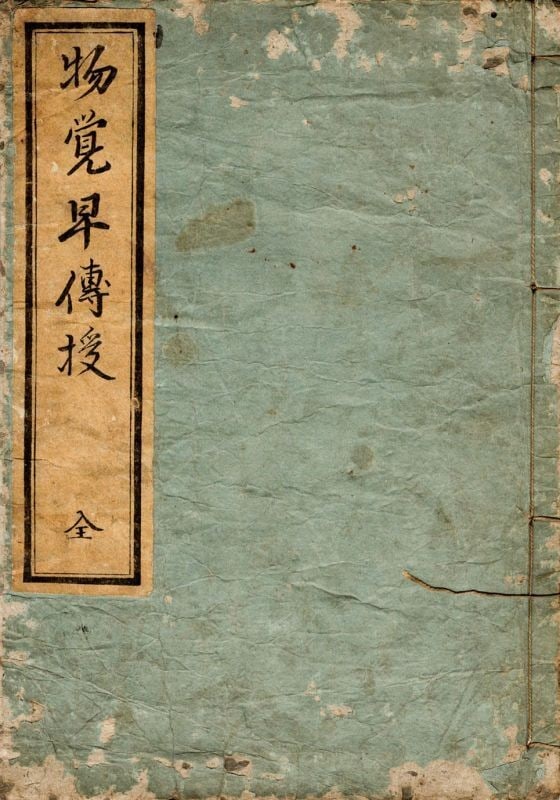 物覚早傳授
全